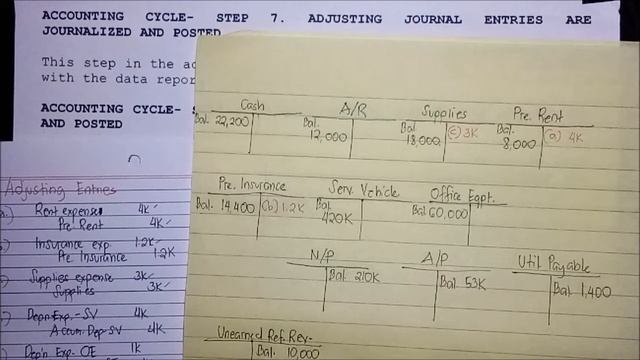 ACCOUNTING CYCLE- STEP 7. ADJUSTING JOURNAL ENTRIES ARE
JOURNALIZED AND POSTED
This step in the ac
with the data repor
ACCOUNTING CYCLE- S
AND POSTED
Cash A/R Supplies Pre. Rent
Bal. 22,200 Bal. 12,000 Bal. 18,000 (c) 3K Bal. 8,000 (a) 4K
Pre. Insurance Serv. Vehicle Office Eqpt.
Bal. 14,400 (b) 1.2K Bal. 420K Bal. 60,000
N/P A/P Util. Payable
Bal. 210K Bal. 53K Bal. 1,400
Unearned Ref. Rev.
Bal. 10,000
Adjusting Entries
a.) Rent expense 4K
Pre. Rent 4K
Insurance exp. 1.2K
Pre Insurance 1.2K
Supplies expense 3K
Supplies 3K
Depn Exp.-SV 4K
Accum. Dep SV 4K
Depn Exp. OE 1K